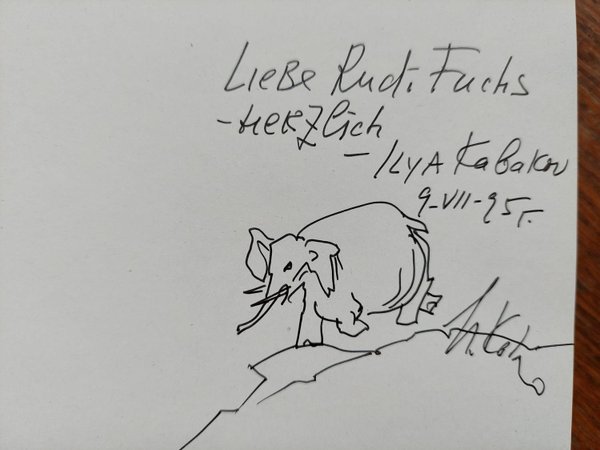 Liebe Rudi Fuchs
- Herzlich
- Ilya Kabakov
9-VII-95 г.